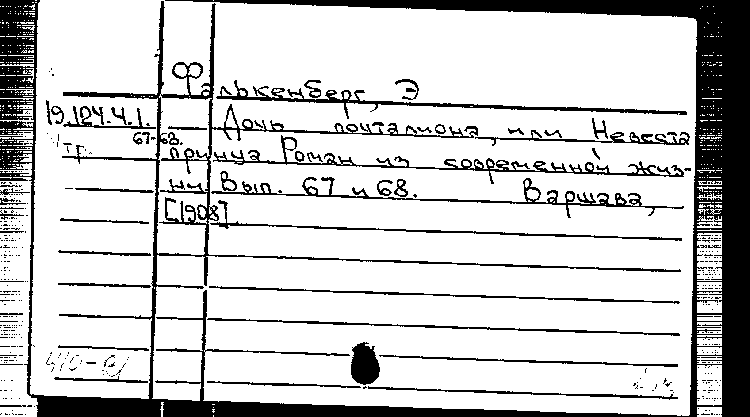 Фалькенберг, Э
19.124.4.1. Дочь почталиона, или Невеста
67-68.
тр. принца Роман из современной жиз-
ни Вып. 67 и 68. Варшава,
[1908]